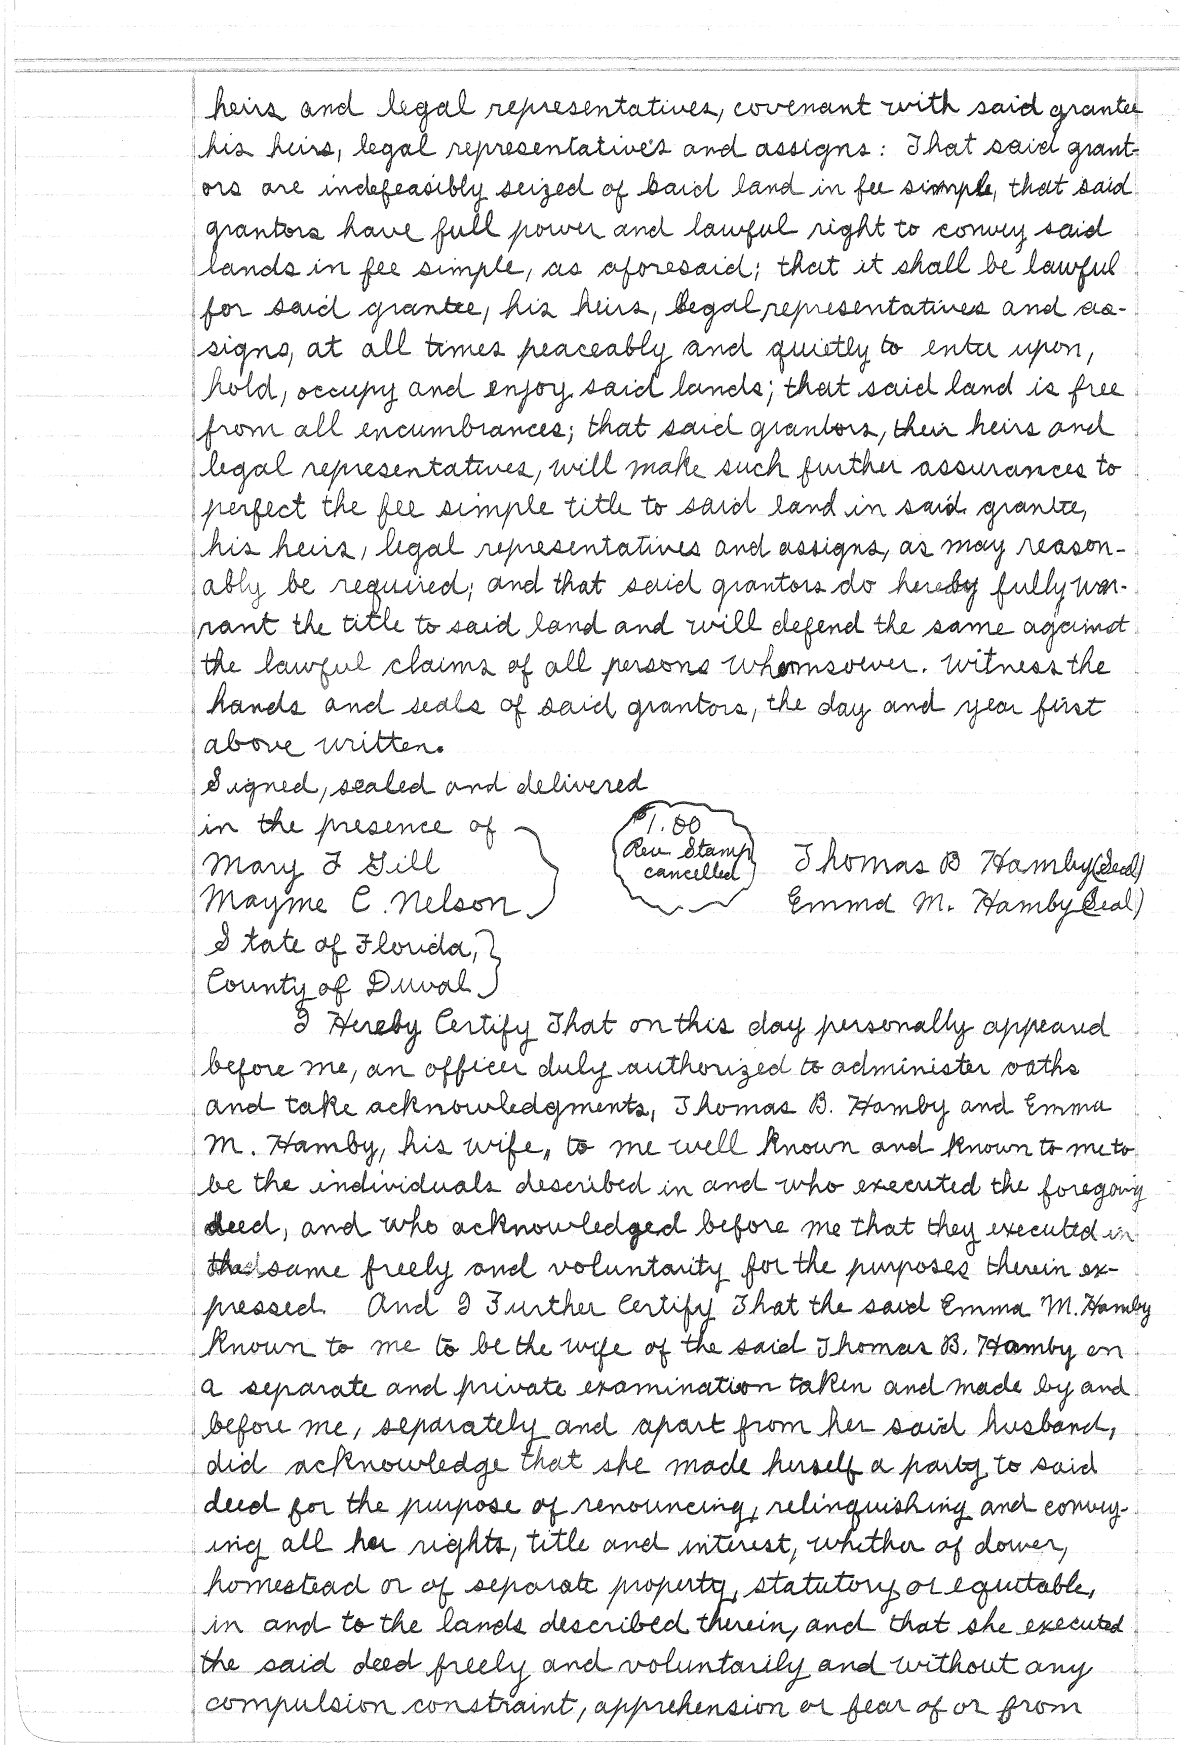 heirs and legal representatives, covenant with said grantee
his heirs, legal representatives and assigns: That said grant-
ors are indefeasibly seized of said land in fee simple, that said
grantors have full power and lawful right to convey said
lands in fee simple, as aforesaid; that it shall be lawful
for said grantee, his heirs, legal representatives and as-
signs, at all times peaceably and quietly to enter upon,
hold, occupy and enjoy said lands; that said land is free
from all encumbrances; that said grantors, their heirs and
legal representatives, will make such further assurances to
perfect the fee simple title to said land in said grantee,
his heirs, legal representatives and assigns, as may reason-
ably be required; and that said grantors do hereby fully war-
rant the title to said land and will defend the same against
the lawful claims of all persons whomsoever. Witness the
hands and seals of said grantors, the day and year first
above written.
Signed, sealed and delivered
in the presence of
Mary F Gill
Mayme C. Nelson
$1.00
Rev. Stamp
cancelled
Thomas B Hamby (Seal)
Emma M. Hamby (Seal)
State of Florida,
County of Duval
I Hereby Certify That on this day personally appeared
before me, an officer duly authorized to administer oaths
and take acknowledgments, Thomas B. Hamby and Emma
M. Hamby, his wife, to me well known and known to me to
be the individuals described in and who executed the foregoing
deed, and who acknowledged before me that they executed in
the same freely and voluntarity for the purposes therein ex-
pressed. And I Further Certify That the said Emma M. Hamby
known to me to be the wife of the said Thomas B. Hamby on
a separate and private examination taken and made by and
before me, separately and apart from her said husband,
did acknowledge that she made herself a party to said
deed for the purpose of renouncing, relinquishing and convey-
ing all her rights, title and interest, whether of dower,
homestead or of separate property, statutory or equitable,
in and to the lands described therein, and that she executed
the said deed freely and voluntarily and without any
compulsion constraint, apprehension or fear of or from